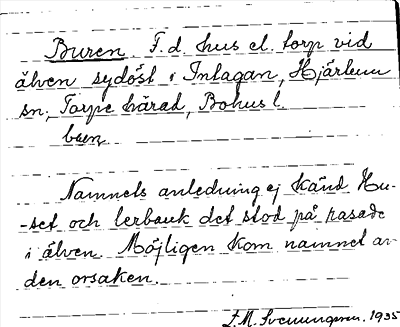 Buren. F.d. hus el. torp vid
älven sydöst i Intagan, Hjärtum
sn; Torpe härad, Bohus l.
buen
Namnets anledning ej känd Hu-
-set och lerbank det stod på rasade
i älven. Möjligen kom namnet av
den orsaken.
S.M. Svenningson. 1935